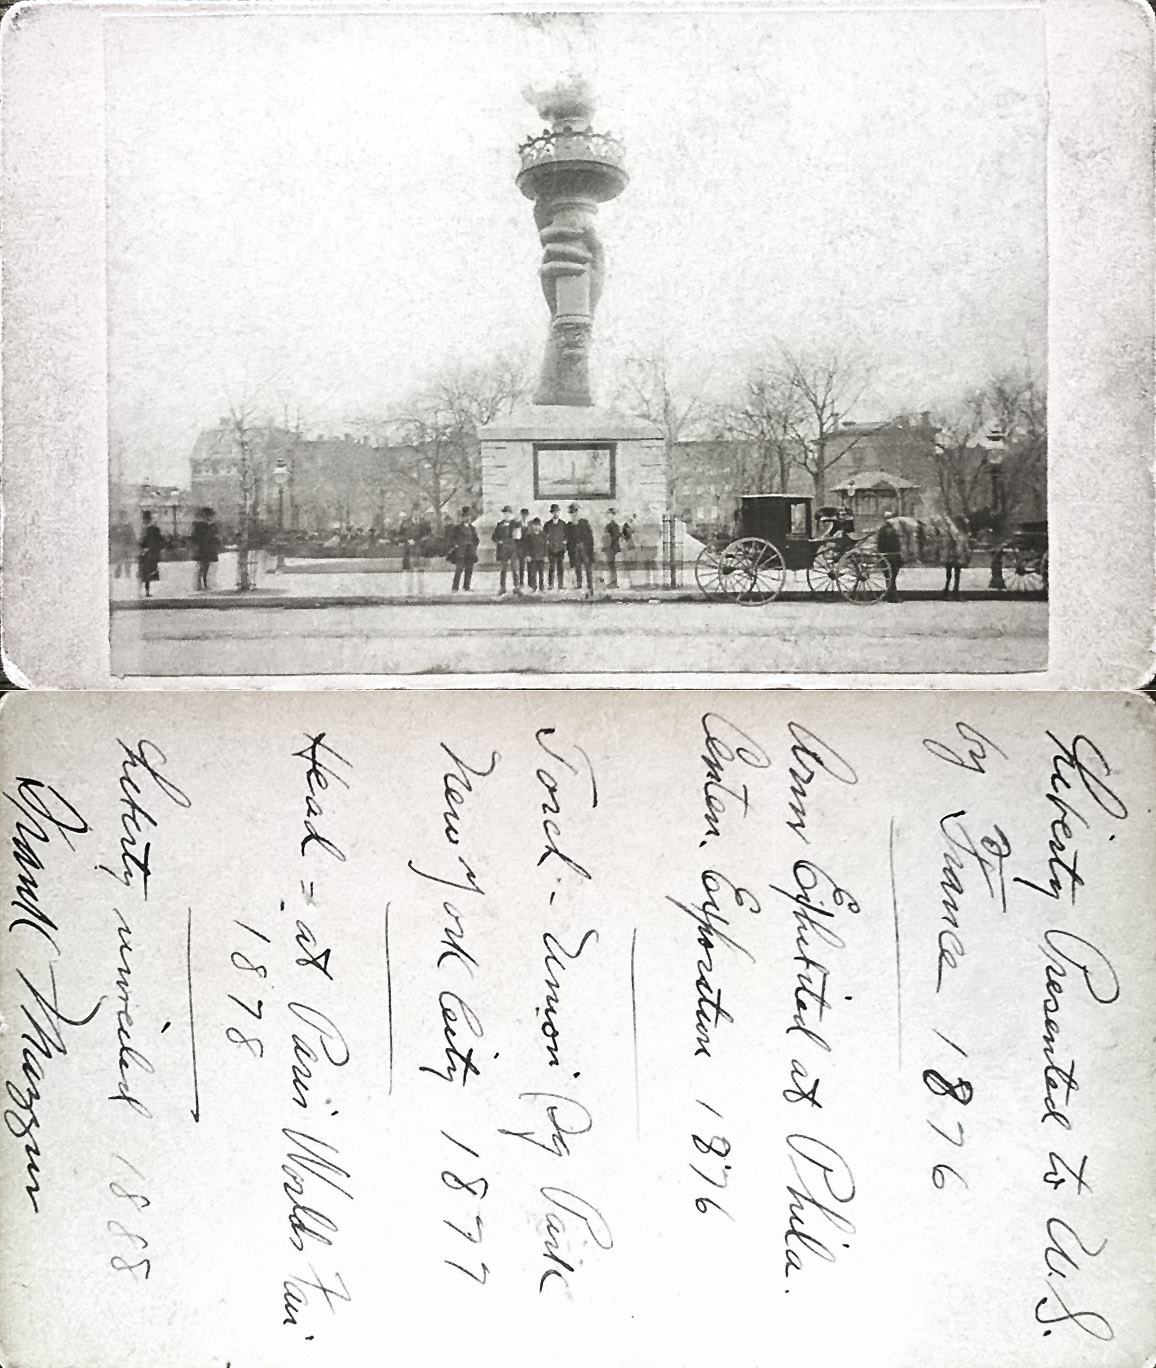 Liberty Presented to U.S.
by France 1876
Arm Exhibited at Phila.
Centen. Exposition 1876
Torch - Union Sq Park
New York City 1877
Head = at Paris Worlds Fair
1878
Liberty unveiled 1888
Frank